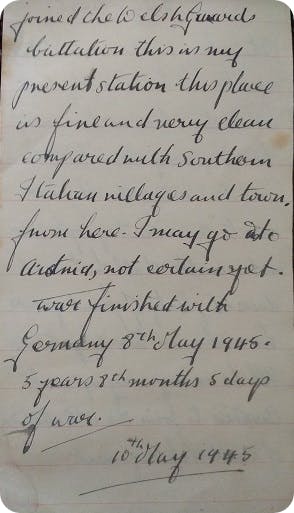 joined the Welsh Guards
battation this is my
present station this place
is fine and very clean
compared with Southern
Italian villages and town.
from here. I may go
not certain yet.
war finished with
Germany 8th May 1945.
5 years 8th months 5 days
of war.
10th May 1945